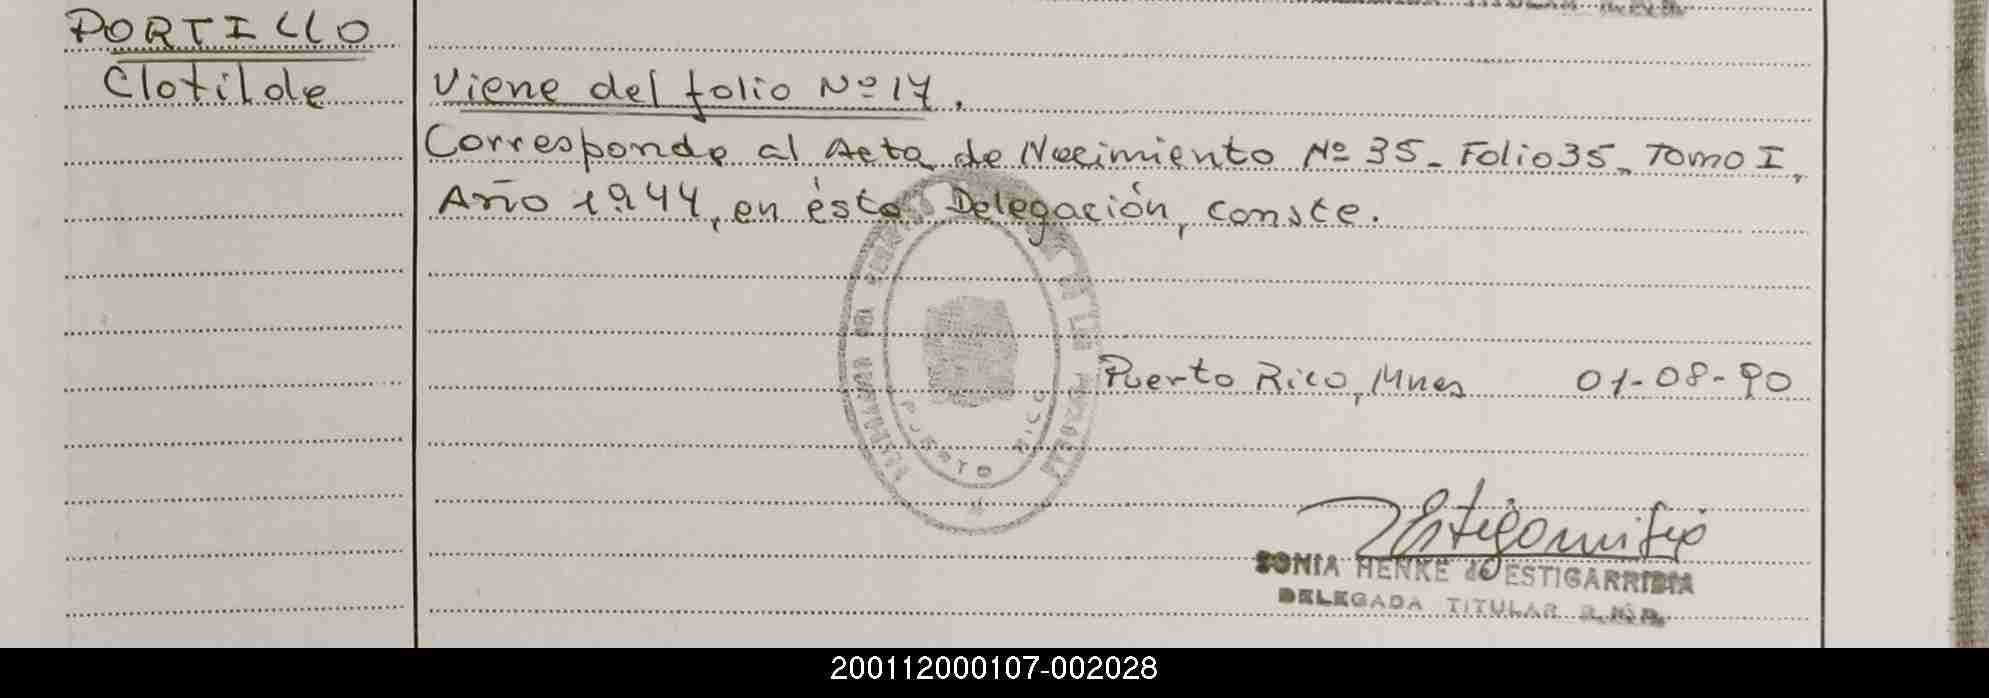 PORTILLO
Clotilde
Viene del folio Nº 17.
Corresponde al Acta de Nacimiento Nº 35_ Folio 35_ Tomo I,
Año 1944, en ésta Delegación, conste.
PUERTO RICO
Puerto Rico, Mnes 01-08-90
SONIA HENKE de ESTIGARRIBIA
DELEGADA TITULAR
200112000107-002028